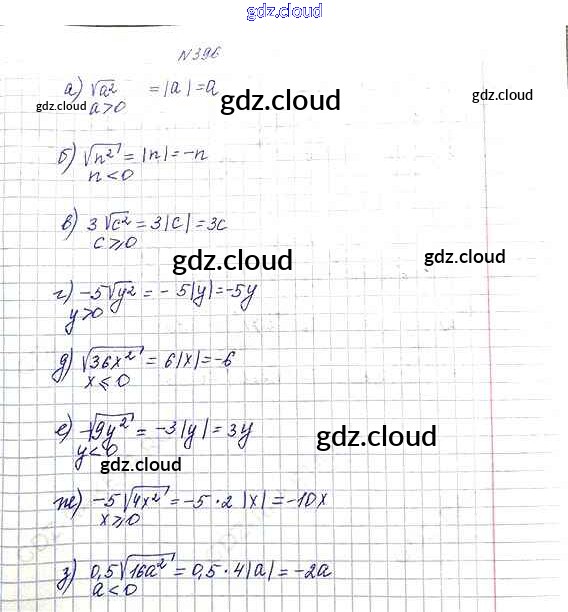 gdz.cloud
N396
а) √a² = |a| = a
a>0
gdz.cloud
gdz.cloud
gdz.cloud
б) √n² = |n| = -n
n<0
в) 3√c² = 3|c| = 3c
c⩾0
gdz.cloud
gdz.cloud
г) -5√y² = -5|y| = -5y
y>0
д) √36x² = 6|x| = -6
x⩽0
gdz.cloud
е) -√9y² = -3|y| = 3y
y<0
gdz.cloud
gdz.cloud
ж) -5√4x² = -5·2|x| = -10x
x⩾0
з) 0,5√16a² = 0,5·4|a| = -2a
a<0